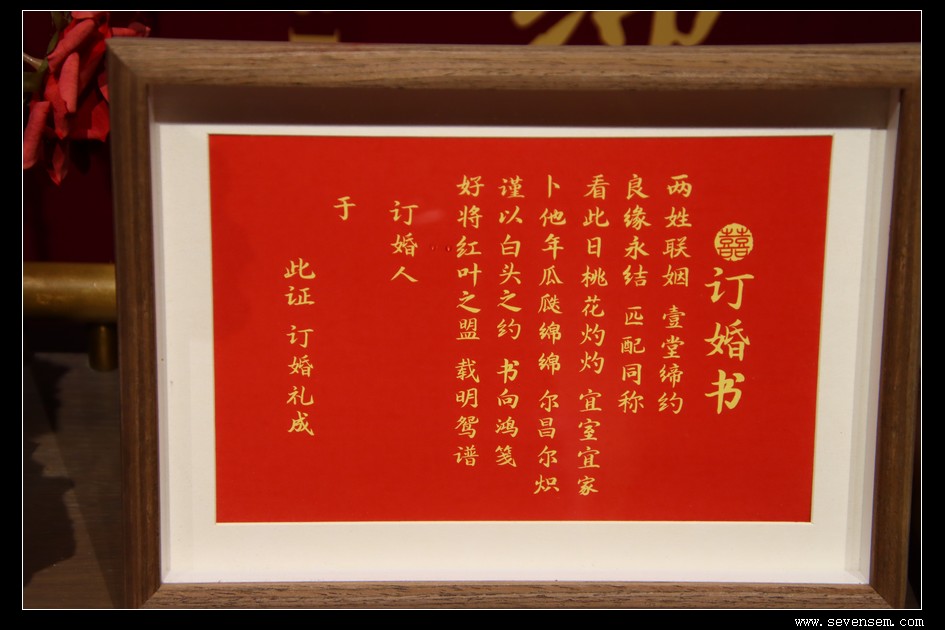 囍
订婚书
两姓联姻 壹堂缔约
良缘永结 匹配同称
看此日桃花灼灼 宜室宜家
卜他年瓜瓞绵绵 尔昌尔炽
谨以白头之约 书向鸿笺
好将红叶之盟 载明鸳谱
订婚人
于
此证 订婚礼成
www.sevensem.com